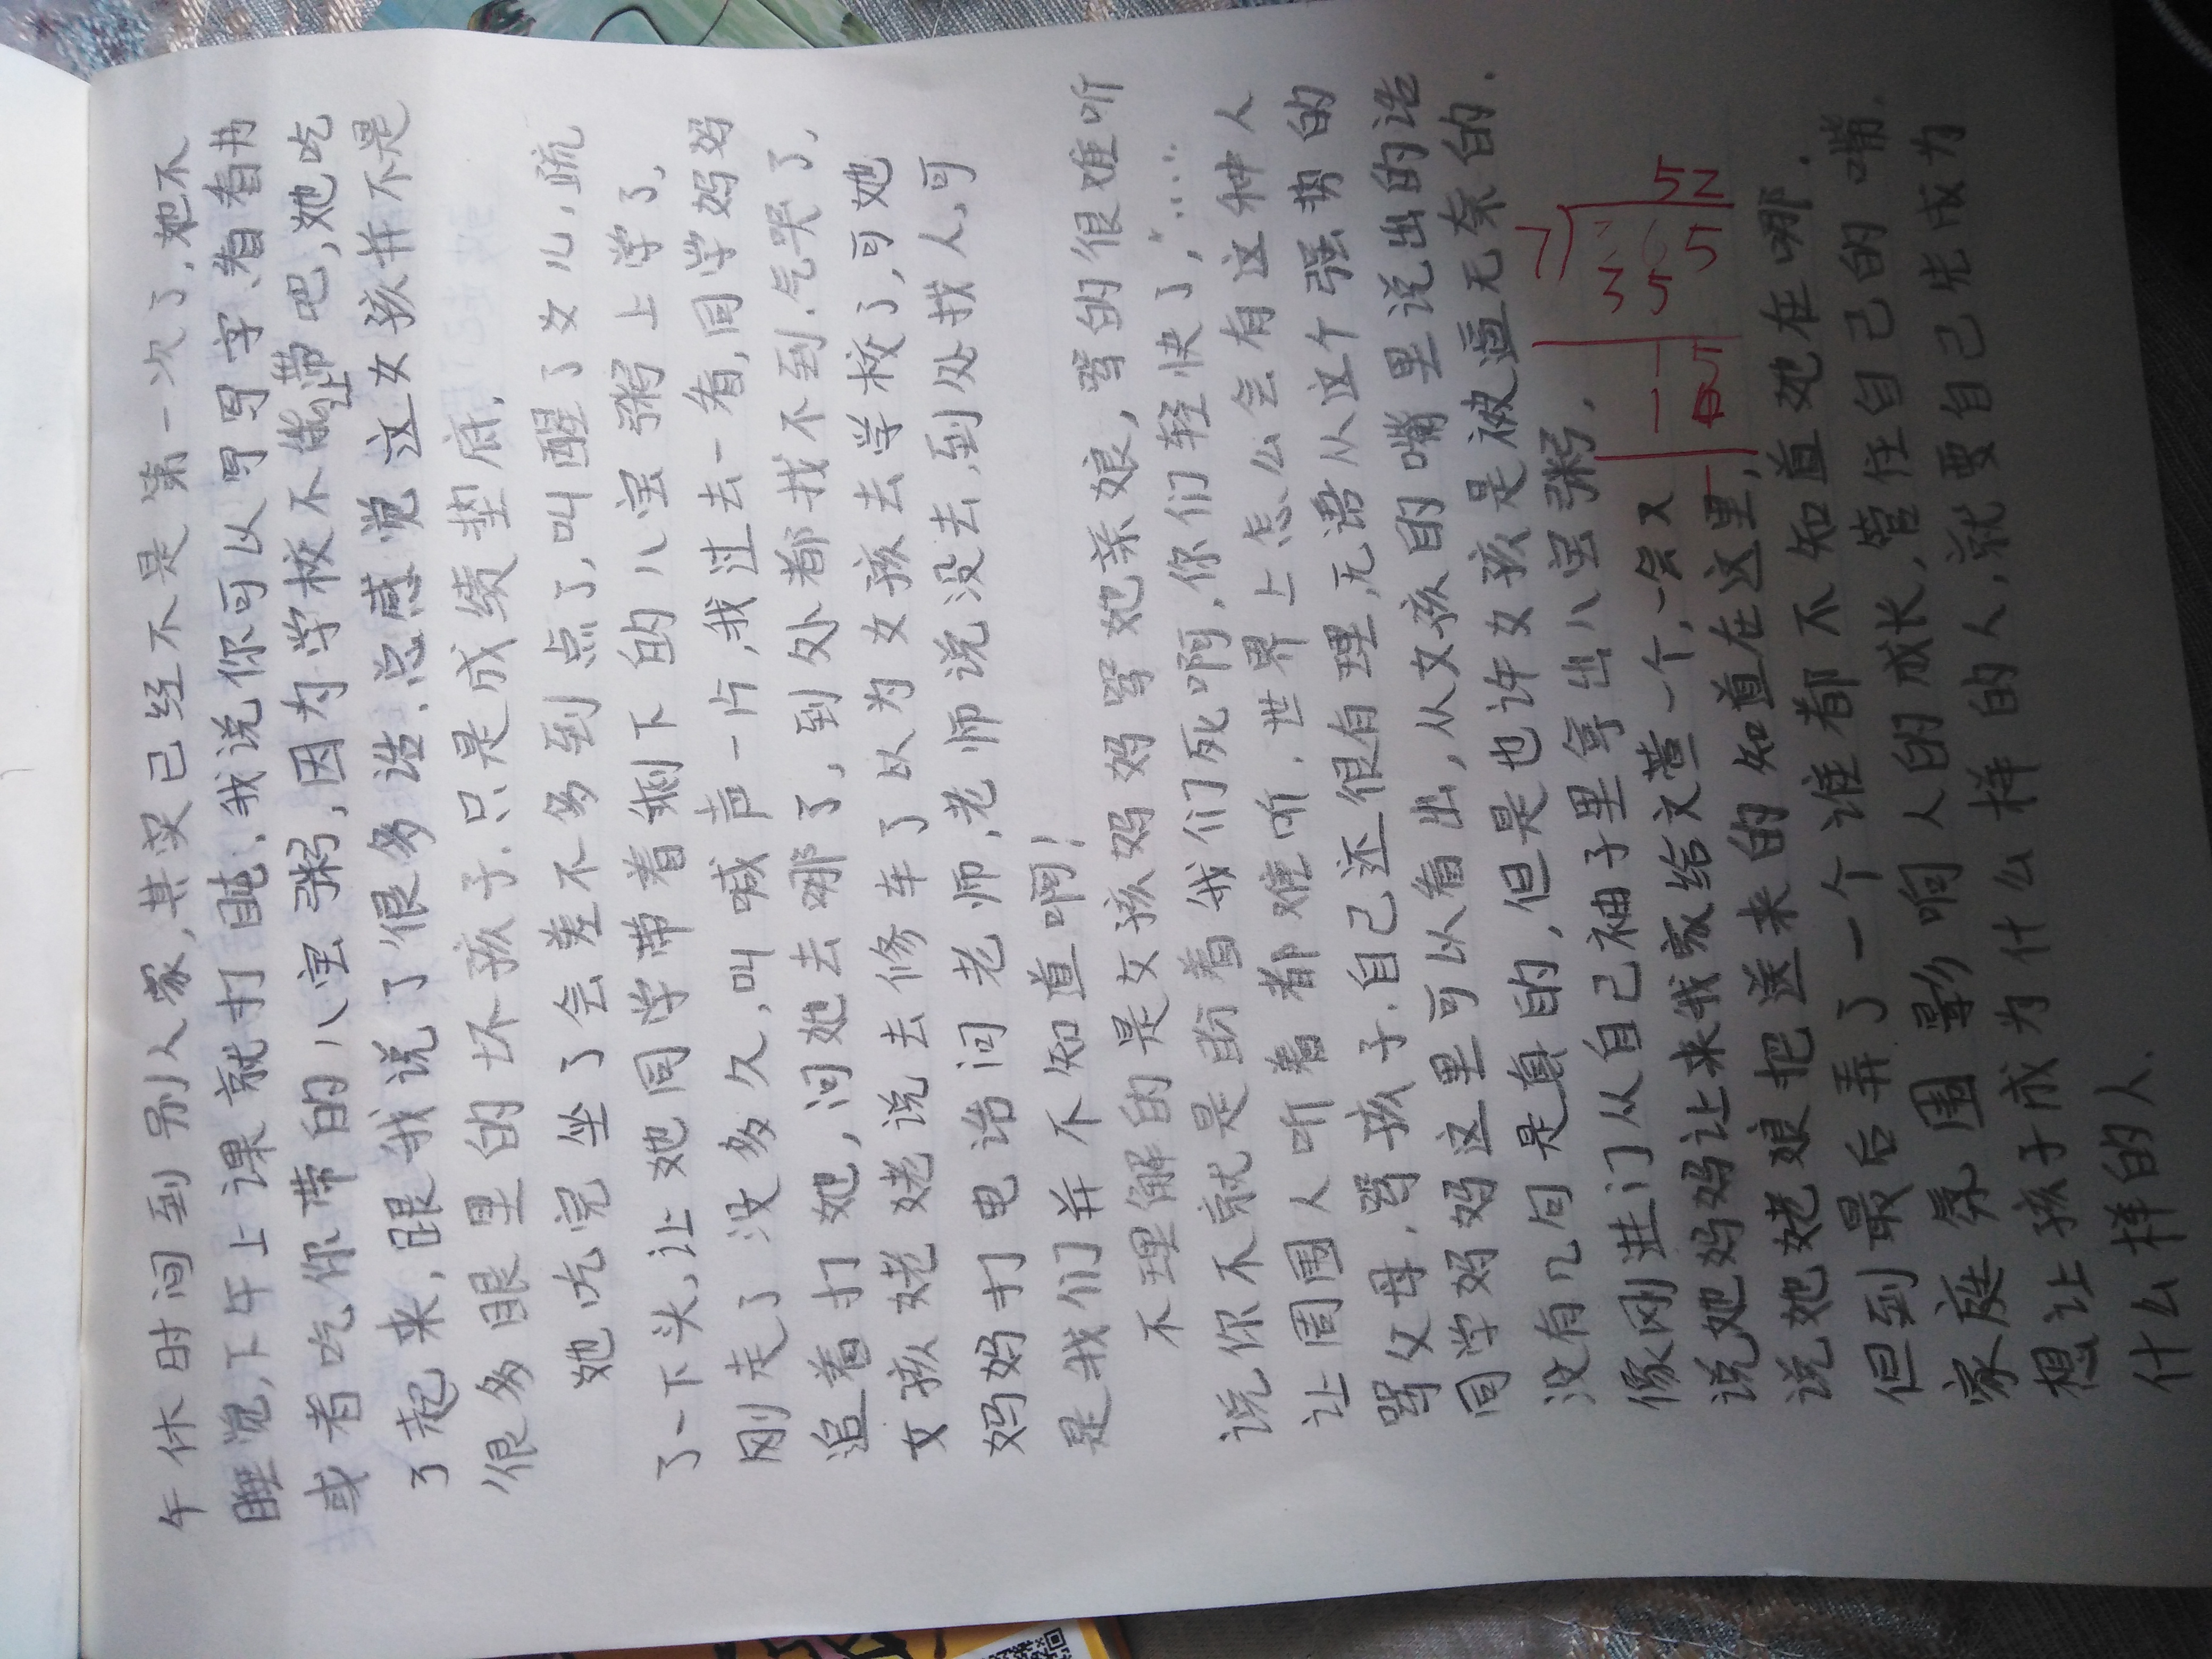 午休时间到别人家,其实已经不是第一次了,她不
睡觉,下午上课就打盹、我说你可以写写字、看看书
或者吃你带的八宝粥,因为学校不能带吧,她吃
了起来,跟我说了很多话、总感觉这女孩并不是
很多眼里的坏孩子.只是成绩垫底,
她吃完坐了会差不多到点了,叫醒了女儿,疏
了一下头,让她同学带着剩下的八宝粥上学了,
刚走了没多久,叫喊声一片,我过去一看,同学妈妈
追着打她,问她去哪了,到处都找不到.气哭了,
女孩姥姥说去修车了以为女孩去学校了,可她
妈妈打电话问老师,老师说没去,到处找人,可
是我们并不知道啊!
不理解的是女孩妈妈骂她亲娘,骂的很难听
说你不就是盼着我们死啊,你们轻快了,"……
让周围人听着都难听.世界上怎么会有这种人
骂父母.骂孩子.自己还很有理,无语从这个强势的
同学妈妈这里可以看出,从女孩目的嘴里说出的话
没有几句是真的,但是也许女孩是被逼无奈的.
像刚进门从自己袖子里拿出八宝粥,
说她妈妈让来我家给文萱一个,一会又
说她姥娘把送来的知道在这里,
但到最后弄了一个谁都不知道她在哪.
家庭氛围影响人的成长,管住自己的嘴.
想让孩子成为什么样的人,就要自己先成为
什么样的人.
52
7 365
35
15